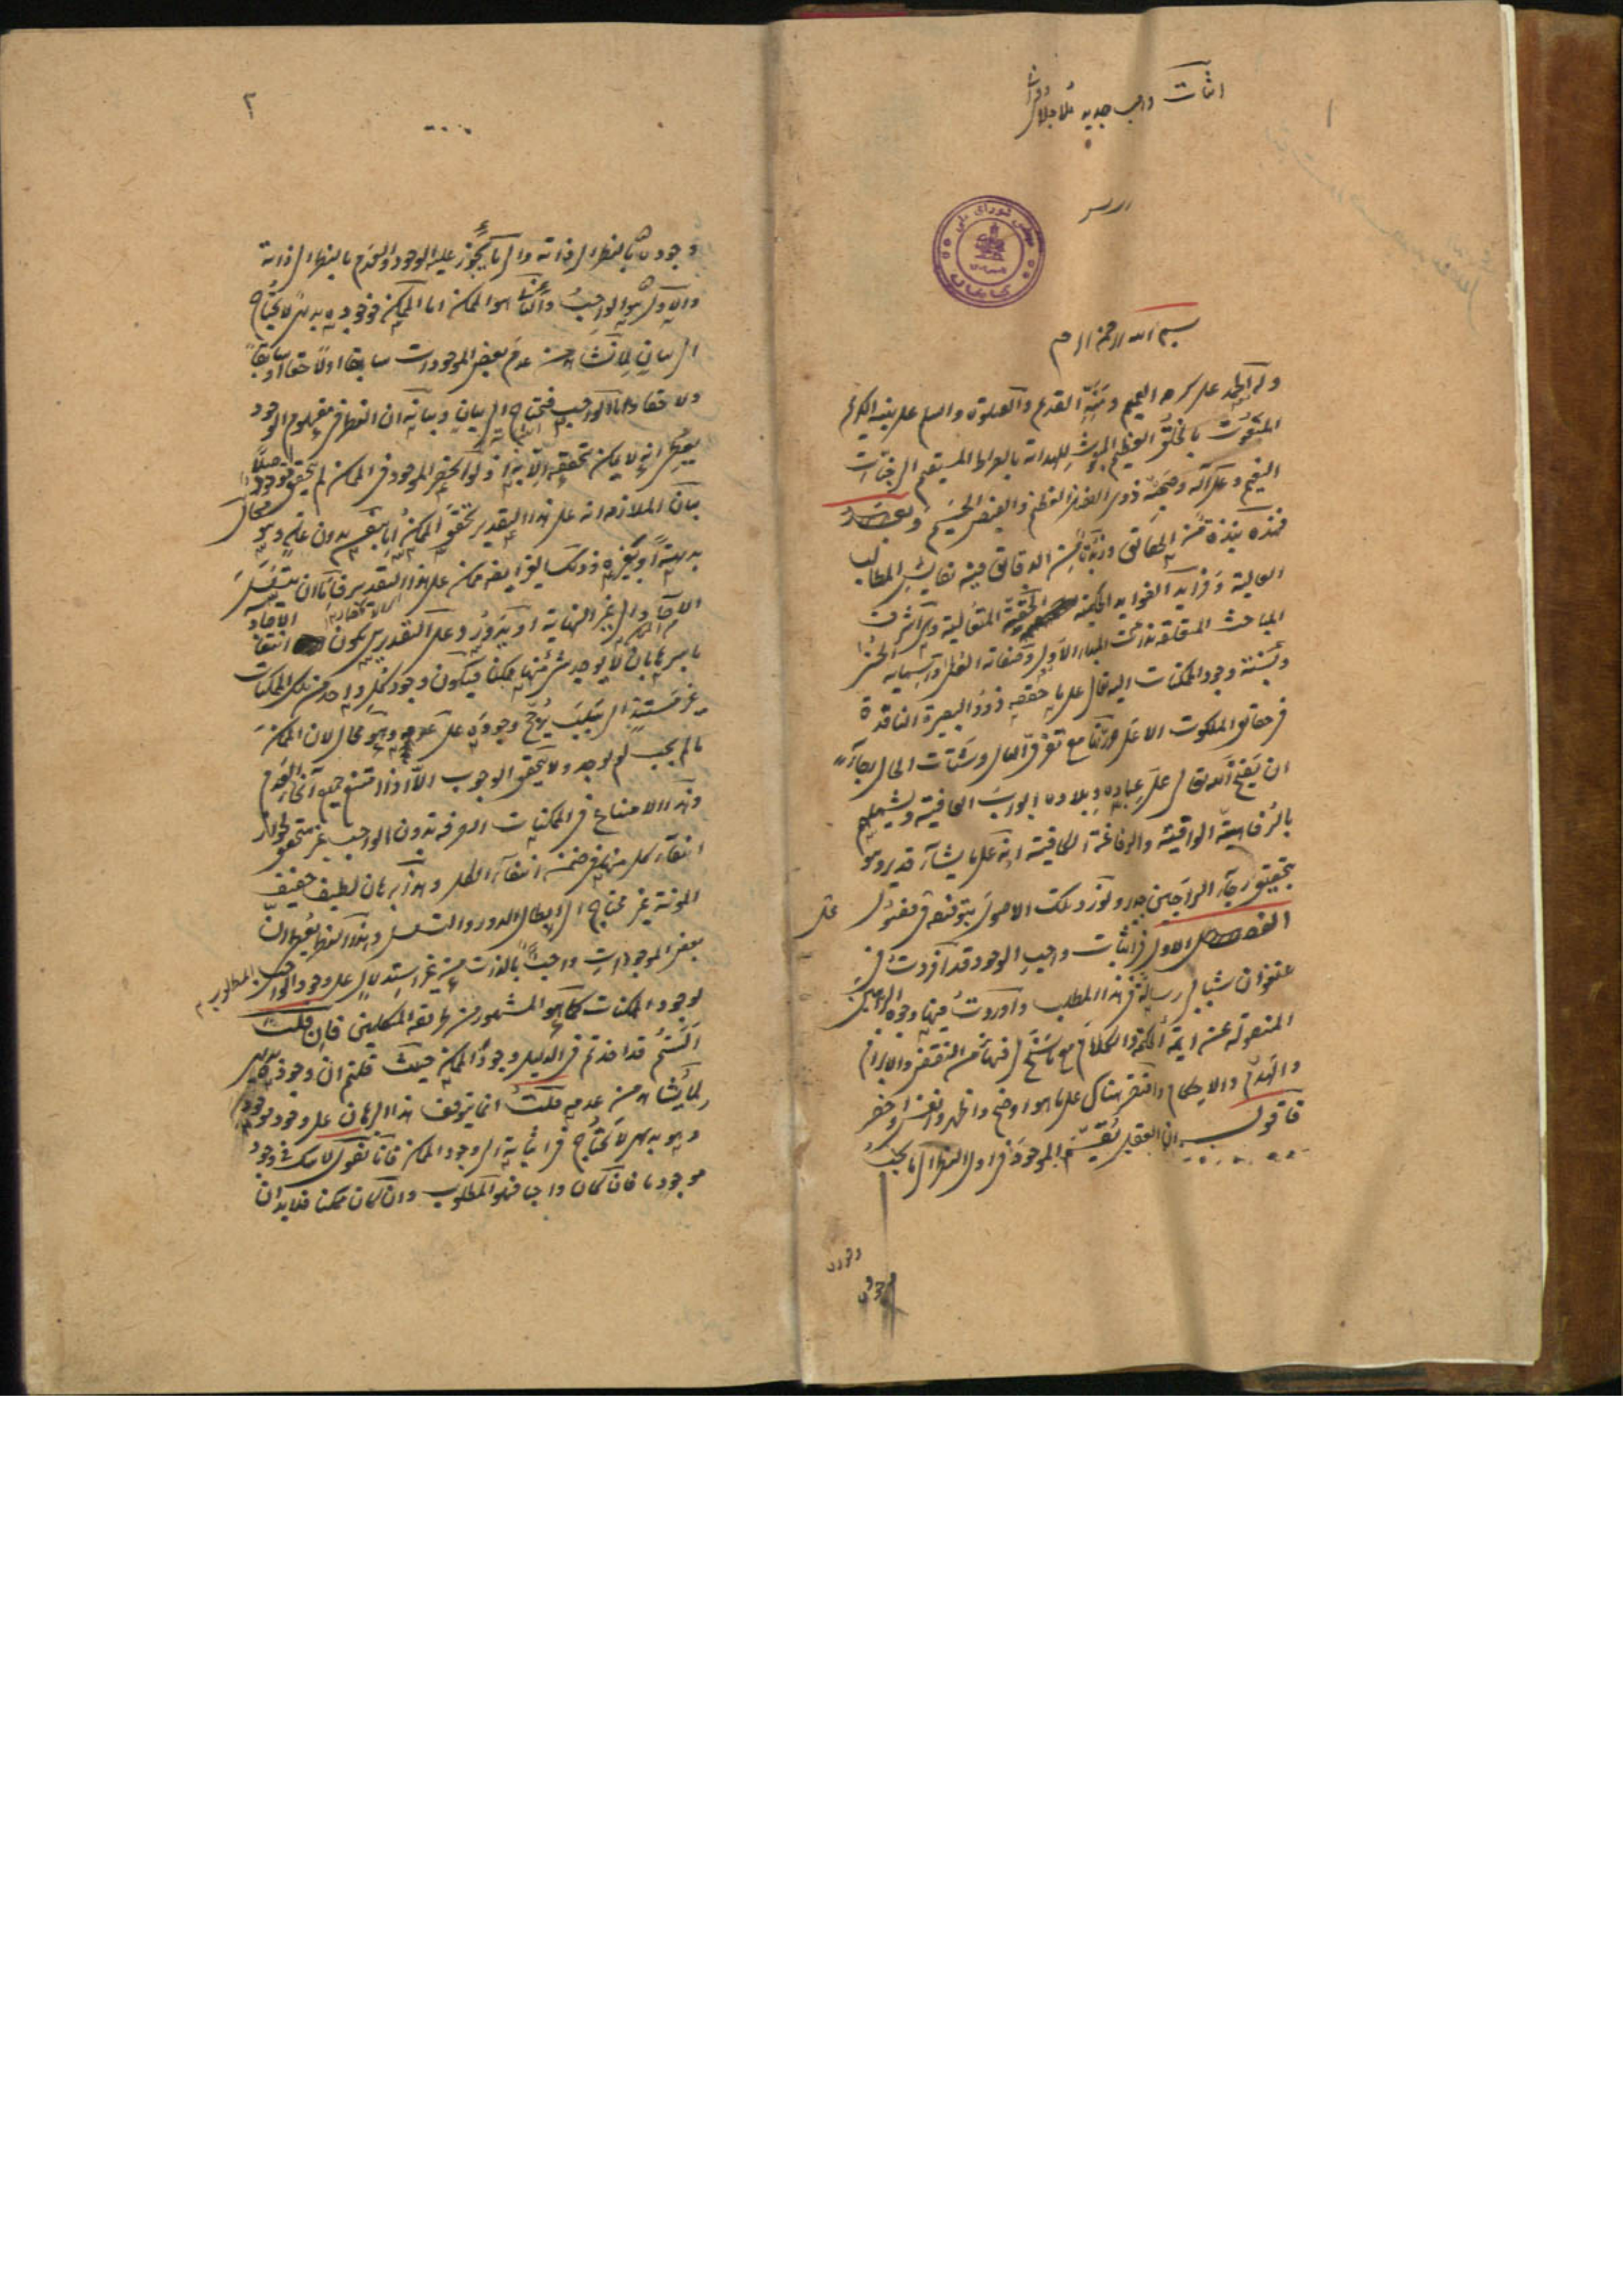 اثبات واجب جدید ملا جلال
۱
بسم الله الرحمن الرحیم
وله الحمد على كرمه العميم ومنه القديم والصلوة والسلم على نبيه الكريم
المبعوث للهداية بالصراط المستقيم الى جنات
النعيم وعلى آله وصحبه ذوى القدر العظيم والفيض الجسيم وبعد
فهذه نبذة من الحقائق وزبدة من الدقائق فيه نفايس المطالب
العالية وفرايد الفوايد الحكمية الحقيقية المتعالية وهى اشرف
المباحث المتعلقة بذات المبدء الاول وصفاته العلى واسمايه الحسنى
ونسبة وجود الممكنات اليه تعالى على ما حققه ذوو البصيرة الناقدة
فى حقائق الملكوت الاعلى مع تفرق البال وتشتت الحال رجاء
ان يفتح الله تعالى على عباده وبلاده ابواب العافية ويشملهم
بالرفاهية الواقية والرفاغة الكافية انه على ما يشاء قدير وهو
بتحقيق رجاء الراجين جدير ونورد تلك الاصول بتوفيقه فى فصول
الفصل الاول فى اثبات واجب الوجود قد افردت فى
عنفوان شبابى رسالة فى هذا المطلب واوردت فيها وجوه البراهين
المنقولة عن ايمة الحكمة والكلام مع ما سنح لى فيها من النقض والابرام
والهدم والاحكام واقتصر هناك على ما هو اوضح واظهر واتقن واخصر
فاقول ان العقل يقسم الموجود فى اول النظر الى ما يجب
۲
وجوده بالنظر الى ذاته والى ما يجوز عليه الوجود والعدم بالنظر الى ذاته
والاول هو الواجب والثانى هو الممكن اما الممكن فوجوده بديهى لا يحتاج
الى بيان لما نشاهد من عدم بعض الموجودات سابقا او لاحقا او سابقا
ولاحقا واما الواجب فيحتاج الى بيان وبيانه ان النظر فى مفهوم الوجود
يعطى انه لا يمكن تحققه الا به اذ لو انحصر الموجود فى الممكن لم يتحقق موجود اصلا
بيان الملازمة انه على هذا التقدير تحقق الممكن اما بنفسه بدون علة وهو محال
بديهة او بغيره وذلك الغير ايضا ممكن على هذا التقدير فاما ان يتسلسل
الآحاد الى غير النهاية او يدور وعلى التقديرين يكون انتفاء
باسرها بان لا يوجد شئ منها ممكنا فيكون وجود كل واحد من تلك الممكنات
غير مستند الى سبب يرجح وجوده على عدمه وهو محال لان الممكن
ما لم يجب لم يوجد ولا يتحقق الوجوب الا اذا امتنع جميع انحاء العدم
وهذا الامتناع فى الممكنات الصرفة بدون الواجب غير متحقق لجواز
انتفاء كل منها فى ضمن انتفاء الكل وهذا برهان لطيف خفيف
المؤنة غير محتاج الى ابطال الدور والتسلسل وهذا النظر يعطى ان
بعض الموجودات واجبا بالذات من غير استدلال على وجود الواجب المطلوب
لوجود الممكنات كما هو المشهور من طريقة المتكلمين فان قلت
الستم قد اخذتم فى الدليل وجود الممكن حيث قلتم ان وجوده بديهى
لما يشاهد من عدمه قلت انما يتوقف هذا البرهان على وجود موجود
وهو بديهى لا يحتاج فى اثباته الى وجود الممكن فانا نقول لا شك فى وجود
موجود ما فان كان واجبا فهو المطلوب وان كان ممكنا فلا بد ان